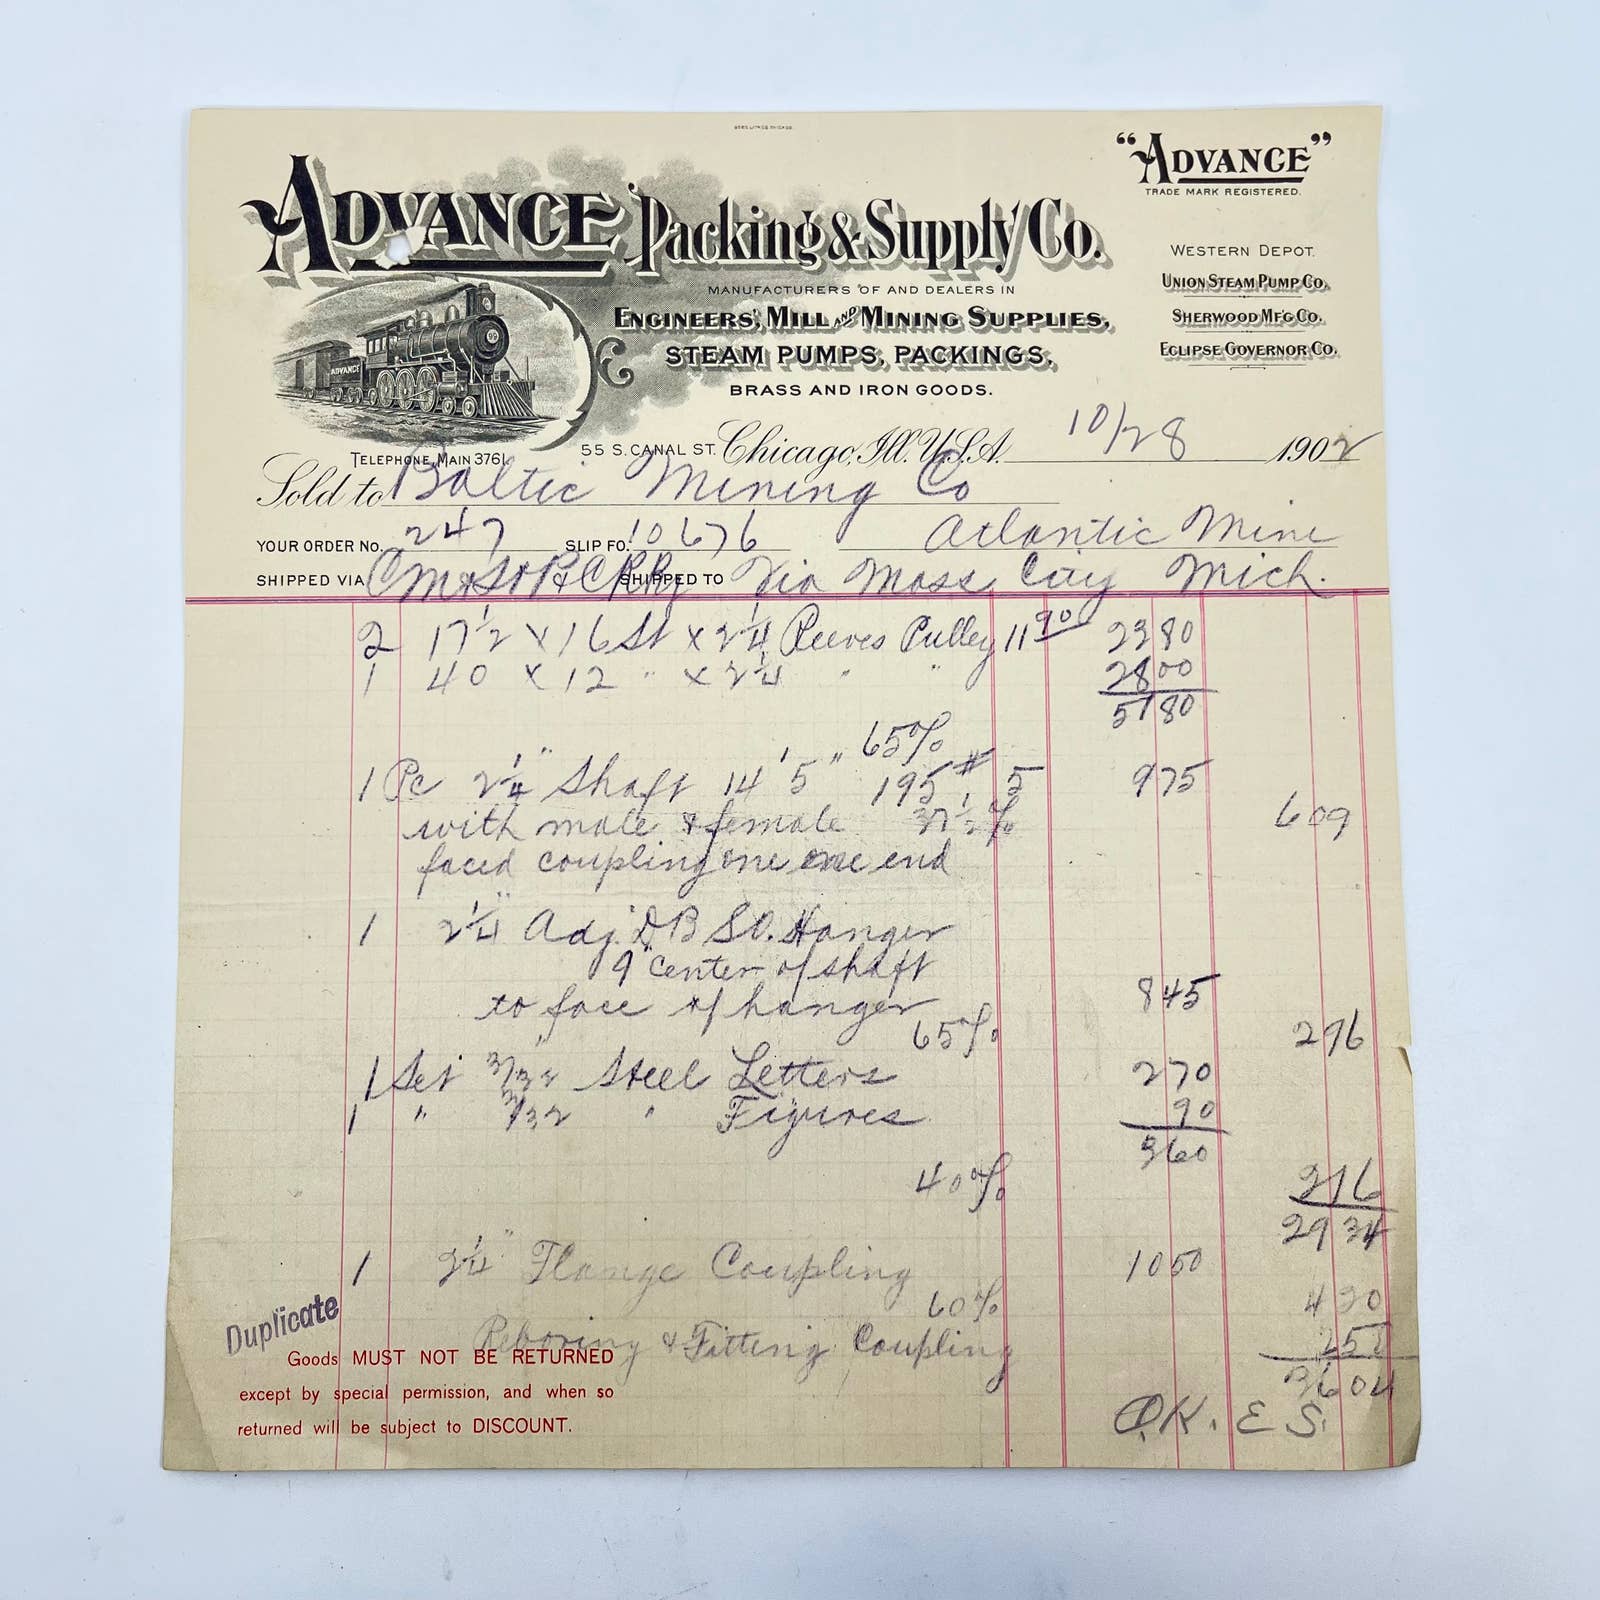 “ADVANCE”
TRADE MARK REGISTERED.
ADVANCE Packing & Supply Co.
MANUFACTURERS OF AND DEALERS IN
ENGINEERS', MILL AND MINING SUPPLIES,
STEAM PUMPS, PACKINGS, &
BRASS AND IRON GOODS.
WESTERN DEPOT.
UNION STEAM PUMP CO.
SHERWOOD MFG CO.
ECLIPSE GOVERNOR CO.
ADVANCE
99
TELEPHONE, MAIN 3761.
55 S. CANAL ST. Chicago, Ill. U.S.A. 10/28 1902
Sold to Baltic Mining Co
YOUR ORDER NO. 247 SLIP FO. 10676 Atlantic Mine
SHIPPED VIA CM & St P & C RRy SHIPPED TO Via Mass City Mich.
2 17 1/2 x 16 St x 2 1/4 Reeves Pulley 11 90 23 80
1 40 x 12 " x 2 1/4 " " 28 00
51 80
65%
1 Pc 2 1/4" Shaft 14' 5" 195# 5 9 75
with male & female 37 1/2 % 6 09
faced coupling one one end
1 2 1/4" Adj. D B S O. Hanger
9" center of shaft
to face of hanger 8 45
65% 2 96
1 Set 3/32" Steel Letters 2 70
1 " 3/32 " Figures 90
3 60
40% 2 16
29 34
1 2 1/4" Flange Coupling 10 50
60% 4 20
Reboring & Fitting Coupling 2 50
36 04
Duplicate
Goods MUST NOT BE RETURNED
except by special permission, and when so
returned will be subject to DISCOUNT.
O.K. E S.